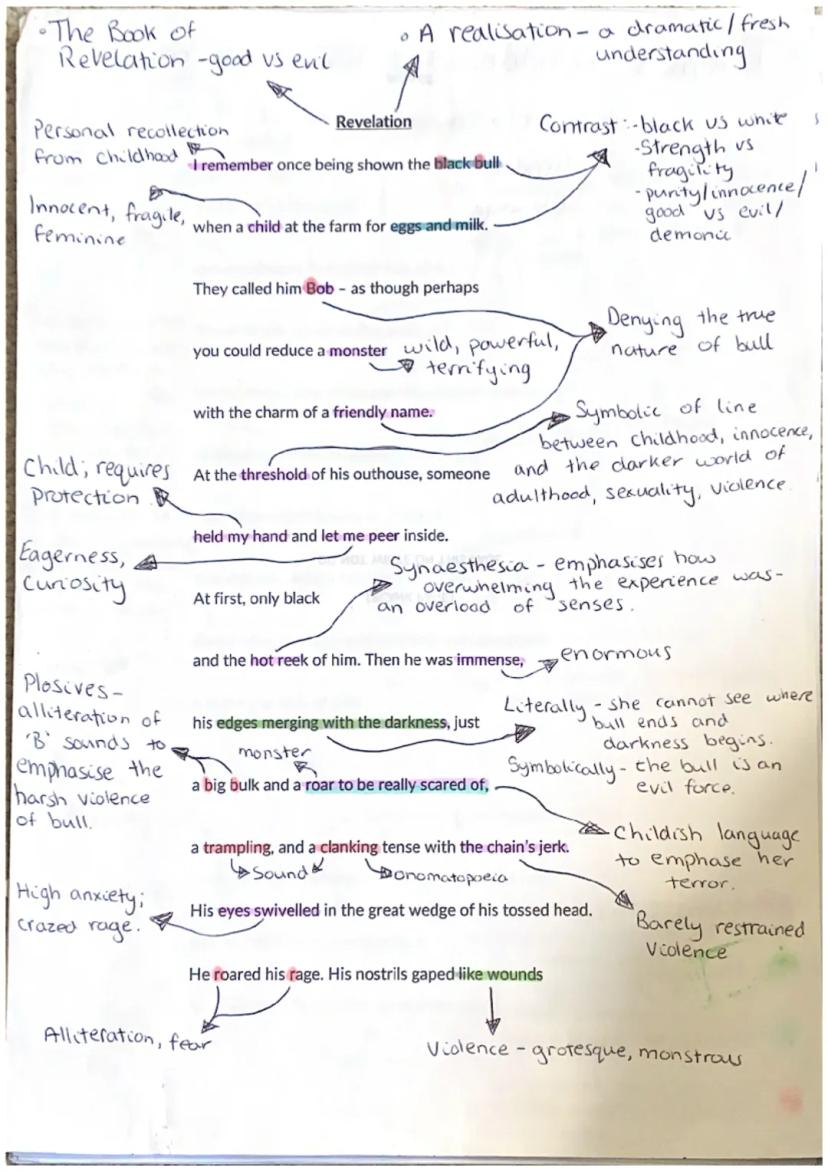 • The Book of
Revelation - good vs evil
• A realisation - a dramatic/fresh
understanding
Revelation
Personal recollection
from childhood
Contrast :- black vs white
- Strength vs
fragility
- purity/innocence/
good vs evil/
demonic
I remember once being shown the black bull
Innocent, fragile,
feminine
when a child at the farm for eggs and milk.
They called him Bob – as though perhaps
Denying the true
nature of bull
you could reduce a monster
wild, powerful,
terrifying
with the charm of a friendly name.
Symbolic of line
between childhood, innocence,
and the darker world of
adulthood, sexuality, violence.
At the threshold of his outhouse, someone
Child; requires
protection
held my hand and let me peer inside.
Eagerness,
Curiosity
Synaesthesia - emphasises how
overwhelming the experience was-
an overload of senses.
At first, only black
and the hot reek of him. Then he was immense,
enormous
Plosives-
alliteration of
'B' sounds to
emphasise the
harsh violence
of bull.
his edges merging with the darkness, just
Literally - she cannot see where
bull ends and
darkness begins.
Symbolically - the bull is an
evil force.
monster
a big bulk and a roar to be really scared of,
Childish language
to emphase her
terror.
a trampling, and a clanking tense with the chain's jerk.
Sound
Onomatopoeia
High anxiety;
crazed rage.
His eyes swivelled in the great wedge of his tossed head.
Barely restrained
Violence
He roared his rage. His nostrils gaped like wounds
Alliteration, fear
Violence - grotesque, monstrous